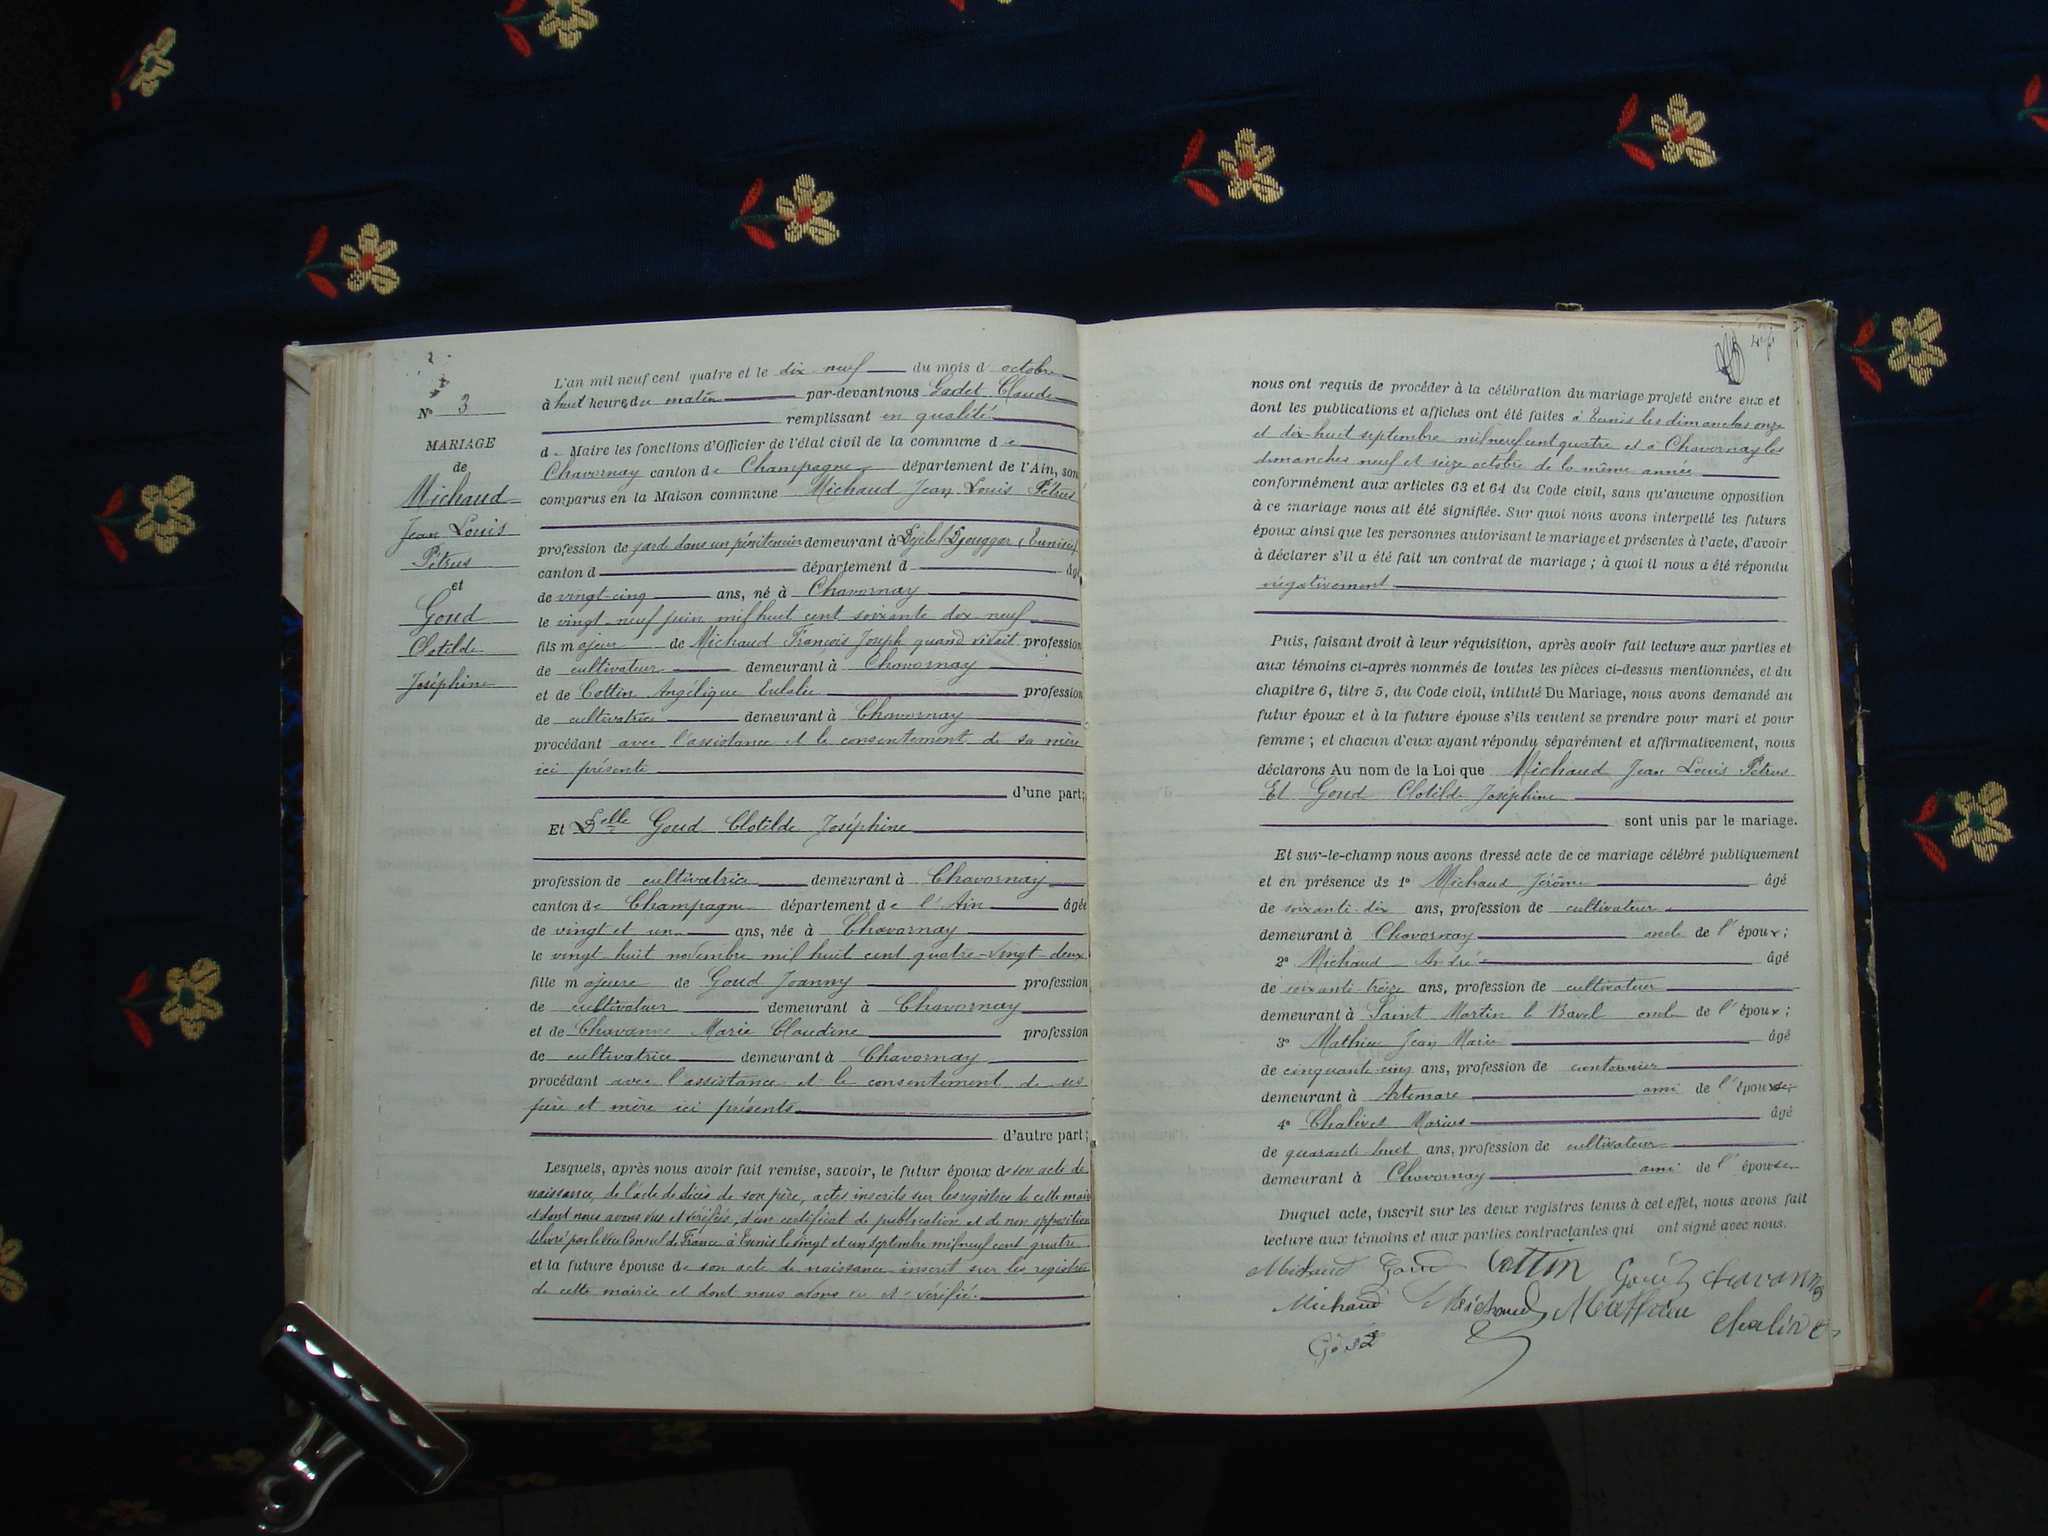 N° 3
MARIAGE
de
Michaud
Jean Louis
Pétrus
et
Goud
Clotilde
Joséphine
L'an mil neuf cent quatre et le dix neuf du mois d octobre
à huit heures du matin par-devant nous Gadet Claude
remplissant en qualité
de Maire les fonctions d'Officier de l'état civil de la commune de
Chavornay canton de Champagne département de l'Ain, son
comparus en la Maison commune Michaud Jean Louis Pétrus
profession de garde dans un pénitencier demeurant à Djebel Djouggar (Tunisie)
canton d département d âgé
de vingt-cinq ans, né à Chavornay
le vingt-neuf juin mil huit cent soixante dix-neuf
fils majeur de Michaud François Joseph quand vivait profession
de cultivateur demeurant à Chavornay
et de Cottin Angélique Eulalie profession
de cultivatrice demeurant à Chavornay
procédant avec l'assistance et le consentement de sa mère
ici présente
d'une part;
Et Delle Goud Clotilde Joséphine
profession de cultivatrice demeurant à Chavornay
canton de Champagne département de l'Ain âgée
de vingt et un ans, née à Chavornay
le vingt-huit novembre mil huit cent quatre-vingt-deux
fille majeure de Goud Joanny profession
de cultivateur demeurant à Chavornay
et de Chavanne Marie Claudine profession
de cultivatrice demeurant à Chavornay
procédant avec l'assistance et le consentement de ses
père et mère ici présents
d'autre part;
Lesquels, après nous avoir fait remise, savoir, le futur époux de son acte de
naissance, de l'acte de décès de son père, actes inscrits sur les registres de cette mairie
et dont nous avons vus et vérifiés, d'un certificat de publication et de non opposition
délivré par le Vice Consul de France à Tunis le vingt et un septembre mil neuf cent quatre
et la future épouse de son acte de naissance inscrit sur les registres
de cette mairie et dont nous avons vu et vérifié.
nous ont requis de procéder à la célébration du mariage projeté entre eux et
dont les publications et affiches ont été faites à Tunis les dimanches onze
et dix-huit septembre mil neuf cent quatre et à Chavornay les
dimanches neuf et seize octobre de la même année
conformément aux articles 63 et 64 du Code civil, sans qu'aucune opposition
à ce mariage nous ait été signifiée. Sur quoi nous avons interpellé les futurs
époux ainsi que les personnes autorisant le mariage et présentes à l'acte, d'avoir
à déclarer s'il a été fait un contrat de mariage; à quoi il nous a été répondu
négativement
Puis, faisant droit à leur réquisition, après avoir fait lecture aux parties et
aux témoins ci-après nommés de toutes les pièces ci-dessus mentionnées, et du
chapitre 6, titre 5, du Code civil, intitulé Du Mariage, nous avons demandé au
futur époux et à la future épouse s'ils veulent se prendre pour mari et pour
femme; et chacun d'eux ayant répondu séparément et affirmativement, nous
déclarons Au nom de la Loi que Michaud Jean Louis Pétrus
Et Goud Clotilde Joséphine
sont unis par le mariage.
Et sur-le-champ nous avons dressé acte de ce mariage célébré publiquement
et en présence de 1° Michaud Jérôme âgé
de soixante-dix ans, profession de cultivateur
demeurant à Chavornay oncle de l'époux;
2° Michaud André âgé
de soixante treize ans, profession de cultivateur
demeurant à Saint Martin de Bavel oncle de l'époux;
3° Mathieu Jean Marie âgé
de cinquante-cinq ans, profession de cantonnier
demeurant à Artemare ami de l'épouse;
4° Chalivet Marius âgé
de quarante huit ans, profession de cultivateur
demeurant à Chavornay ami de l'épouse
Duquel acte, inscrit sur les deux registres tenus à cet effet, nous avons fait
lecture aux témoins et aux parties contractantes qui ont signé avec nous.
Michaud Goud Cottin Goud Chavanne
Michaud Michaud Mathieu Chalivet